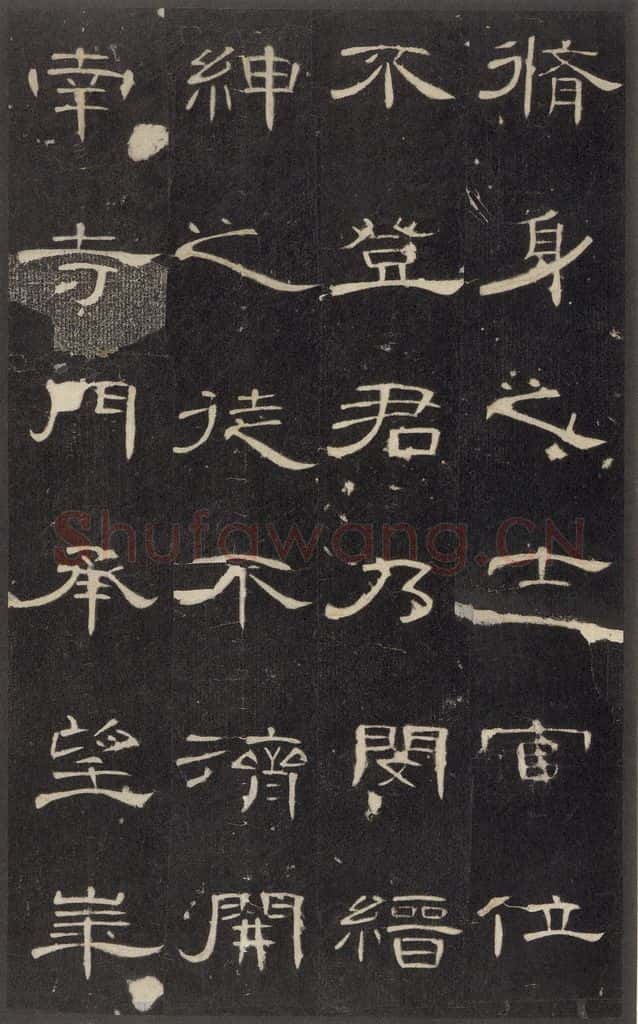 脩身之士官位
不登君乃閔縉
紳之徒不濟開
南寺門承望華
Shufawang.CN